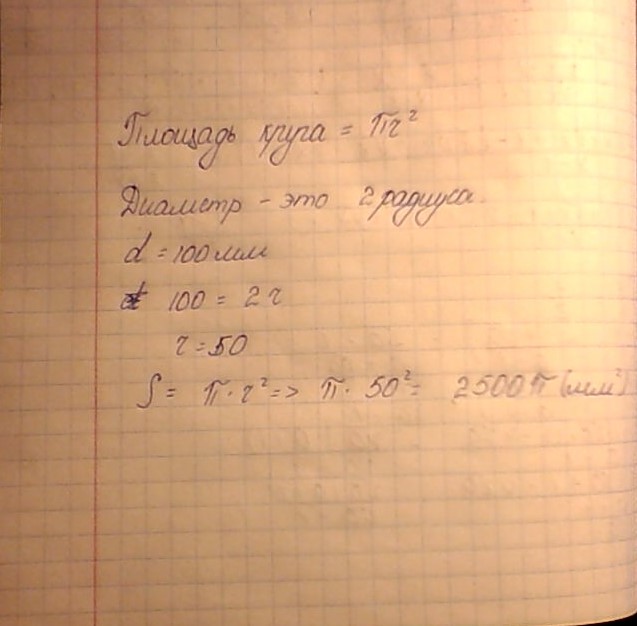 Площадь круга = πr²
Диаметр - это 2 радиуса.
d = 100 мм
100 = 2 r
r = 50
S = π · r² => π · 50² = 2500 π (мм²)